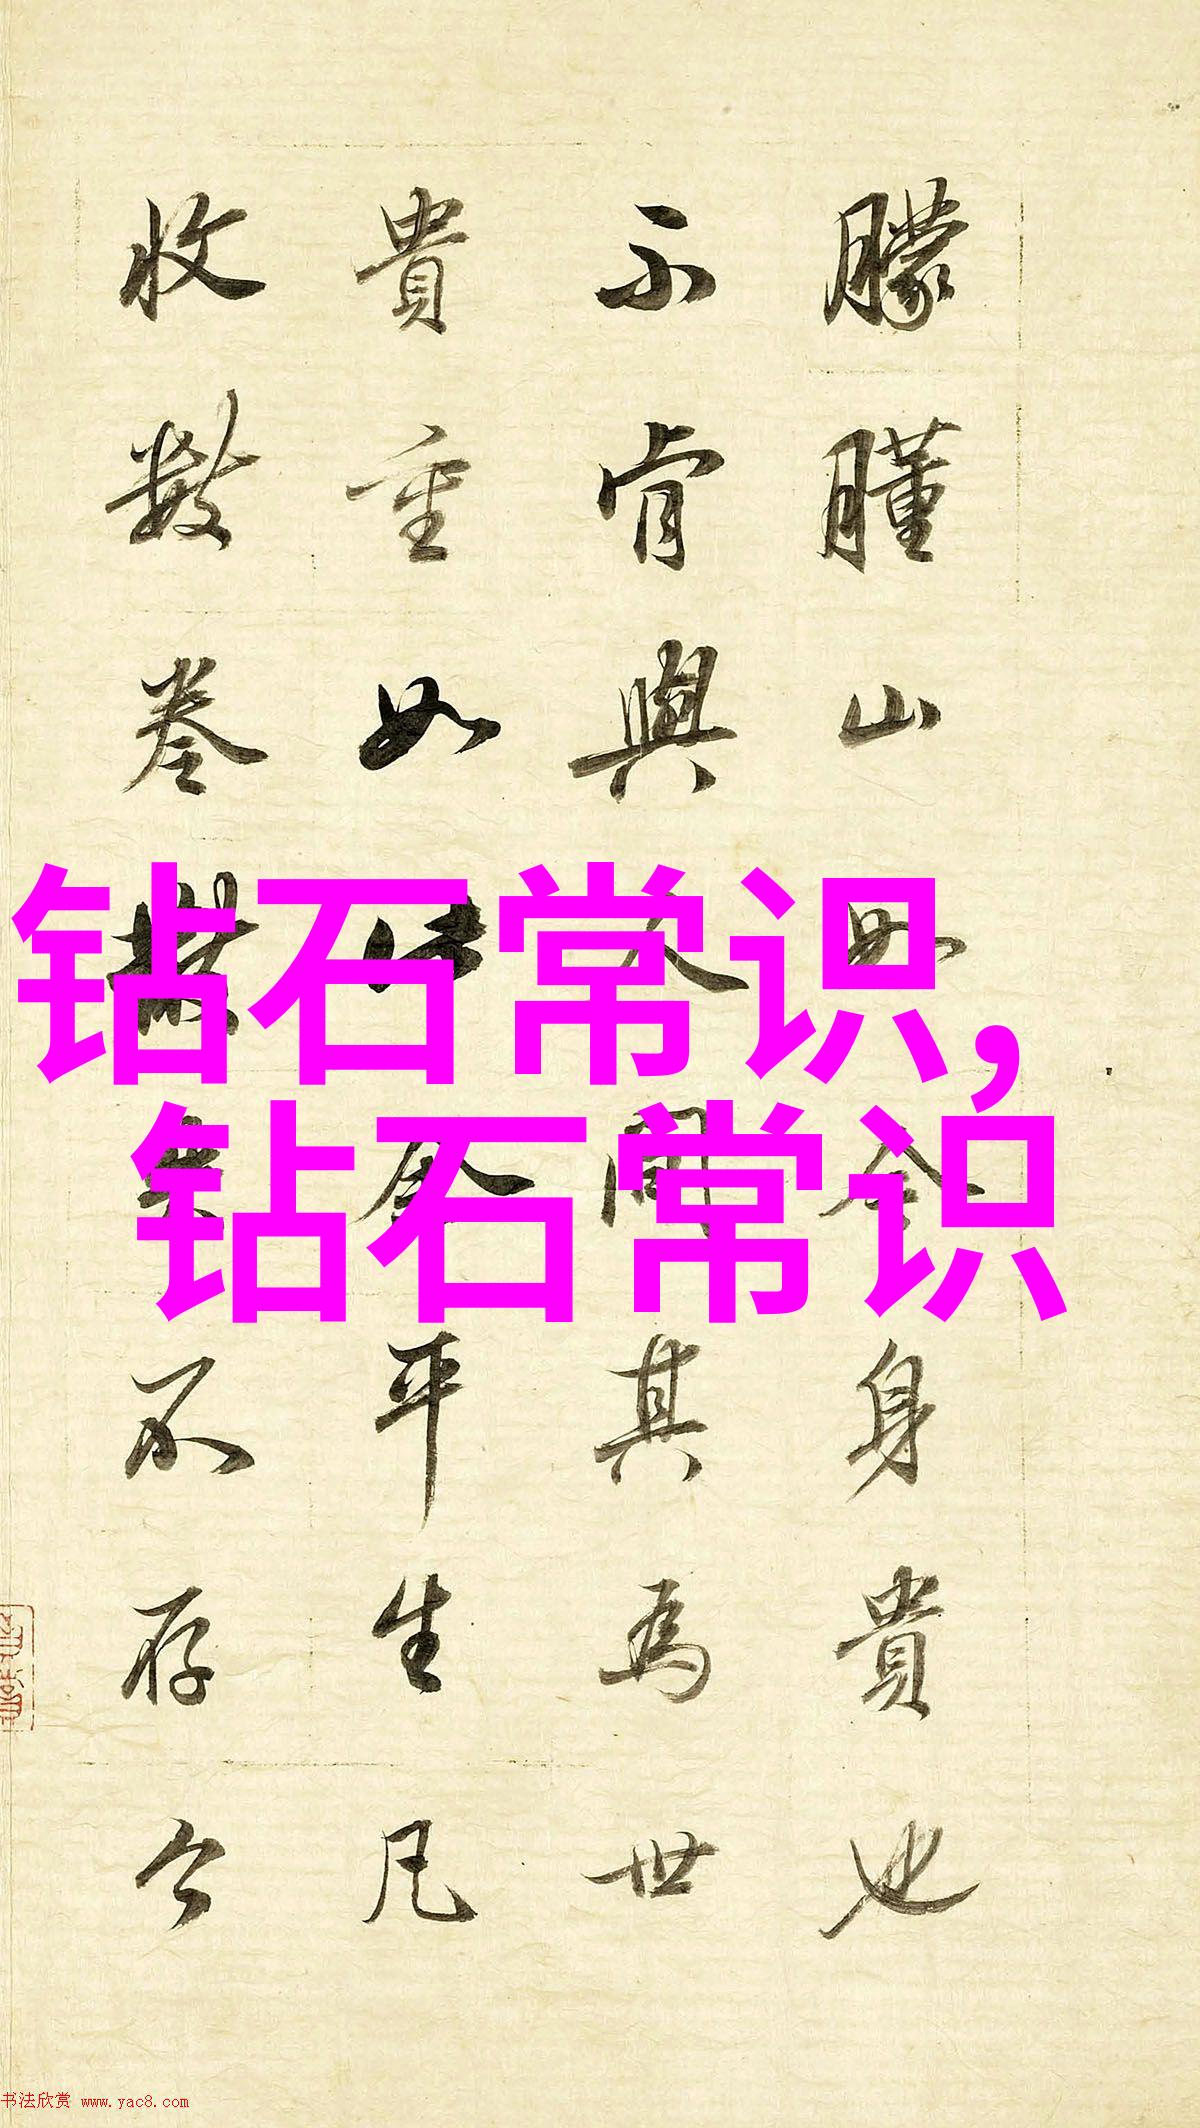 钻石常识,
钻石常识
朦朣山身貴也
不肯與人其為世
貴重如此余平生凡
收數卷不存今
书法欣赏 www.yac8.com